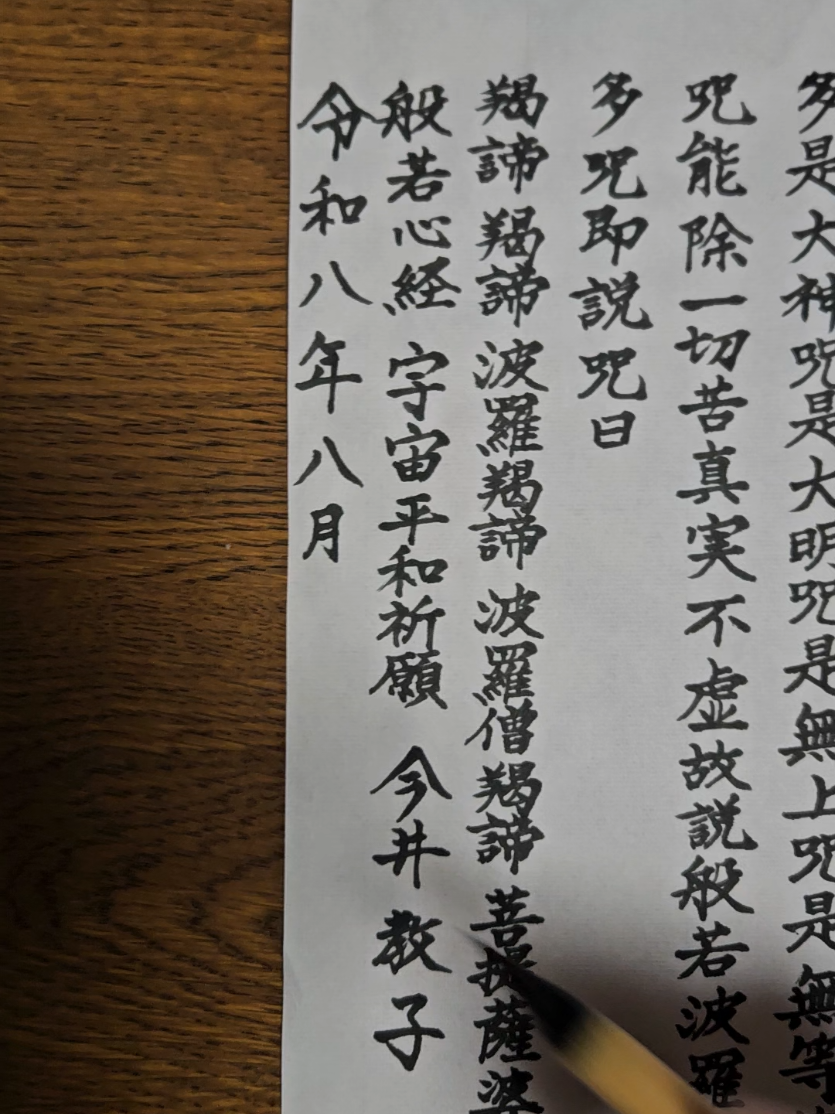 多是大神呪是大明呪是無上呪是無等
呪能除一切苦真実不虚故説般若波羅
多呪即説呪曰
羯諦 羯諦 波羅羯諦 波羅僧羯諦 菩提薩婆
般若心経 宇宙平和祈願 今井教子
令和八年八月